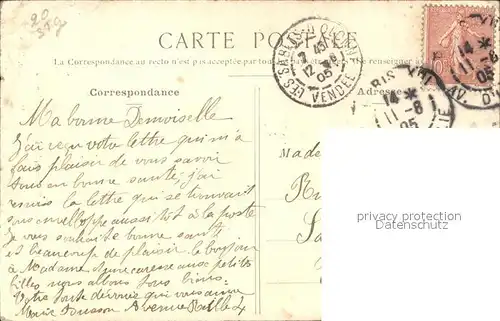 20
CARTE POSTALE
La Correspondance au recto n'est pas acceptée par tout
se renseigner
Correspondance
Adresse
LES SABLES-D'OLONNE
VENDEE
7 45
12 -8
05
PARIS XVI
14 *
11 -8
05
AV. D'
14 *
11 -8
05
Ma bonne Demoiselle
J'ai reçu votre lettre qui m'a
fais plaisir de vous savoir
tous en bonne santé, j'ai
remis la lettre qui se trouvait
sous enveloppe aussitôt à la poste
Je vous souhaite bonne santé
et beaucoup de plaisir le bonjour
à Madame aux petits
filles nous allons tous bien
Votre toute dévouée qui vous aime
Marie Avenue
Made
privacy protection
Datenschutz